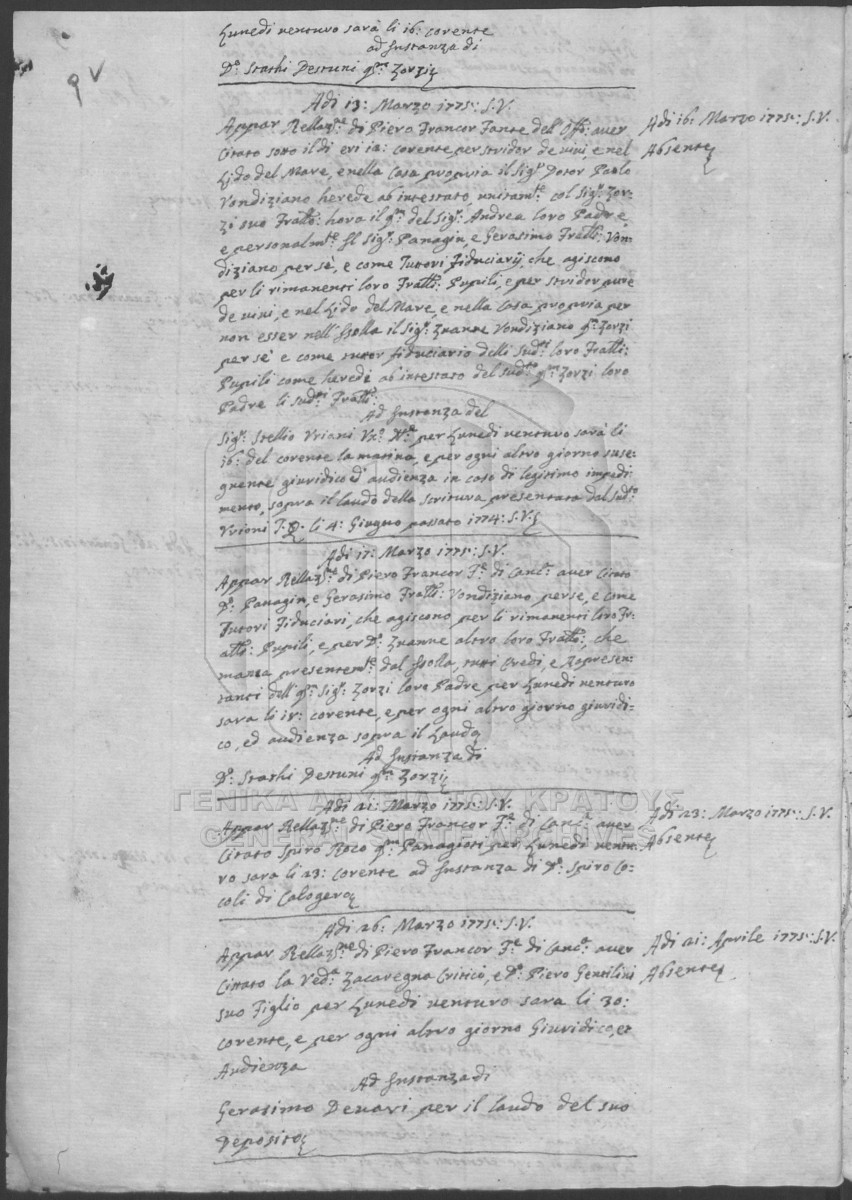 Lunedi venturo sarà li 16: corente
ad Instanza di
Do: Stathi Destuni qm: Zorzi
Adi 13: Marzo 1775: S.V.
Appar Rellazne di Piero Francor Fante del Offo: aver
Citato sotto il di eri 12: corente, per stridor de vivi, e nel
Lido del Mare, e nella Casa propria il Sigr Dotor Paolo
Vondiziano herede ab intestato, unitamte: col Sigr: Zor-
zi suo Fratto: hora il qm: del Sigr: Andrea loro Padre,
e personalmte: Sigr: Panagin, e Gerasimo Fratti: Von-
diziano per sè, e come Tutori Fiduciarij, che agiscono
per li rimanenti loro Fratti: Pupili, e per stridor pure
de vivi, e nel Lido del Mare, e nella Casa propria per
non esser nell'Isolla il Sigr: Zuanne Vondiziano qm: Zorzi
per sè e come tutor fiduciario delli sudti: loro Fratti:
Pupili come heredi ab intestato del sudto: qm: Zorzi loro
Padre li sudti: Fratti:
Ad Instanza del
Sigr: Stellio Vrioni per Lunedi venturo sarà li
16: del corente la matina, e per ogni altro giorno suse-
guente giuridico ed audienza in caso di legitimo impedi-
mento, sopra il laudo della scritura presentata dal sudto:
Vrioni li 4: Giugno passato 1774: S.V.
Adi 17: Marzo 1775: S.V.
Appar Rellazne: di Piero Francor Fte: di Canca: aver Citato
Do: Panagin, e Gerasimo Fratti: Vondiziano per se, e come
Tutori Fiduciari, che agiscono per li rimanenti loro Fr-
atti: Pupili, e per Do: Zuanne altro loro Fratto:, che
manca presentemte: dal Isolla, tutti Eredi, e Rapresen-
tanti dell' qm: Sigr: Zorzi loro Padre per Lunedi venturo
sara li corente, e per ogni altro giorno giuridi-
co, ed audienza sopra il Laudo
Ad Instanza di
Do: Stathi Destuni qm: Zorzi
Adi 21: Marzo 1775: S.V.
Appar Rellazne: di Piero Francor Fte: di Canca: aver
Citato Spiro Roco qm: Panagioti per Lunedi ventu-
ro sara li 23: corente ad Instanza di Do: Spiro Co-
coli di Calogero
Adi 26: Marzo 1775: S.V.
Appar Rellazne di Piero Francor Fte: di Canca: aver
Cittato la Veda: Zacaregna Critico, e Do: Piero Gentilini
suo Figlio per Lunedi venturo sara li 30:
corente, e per ogni altro giorno Giuridico, et
Audienza
Ad Instanza di
Gerasimo Devari per il laudo del suo
Deposito
Adi 16: Marzo 1775: S.V.
Absente
Adi 23: Marzo 1775: S.V.
Absente
Adi 21: Aprile 1775: S.V.
Absente
ΓΕΝΙΚΑ ΑΡΧΕΙΑ ΤΟΥ ΚΡΑΤΟΥΣ
GENERAL STATE ARCHIVES